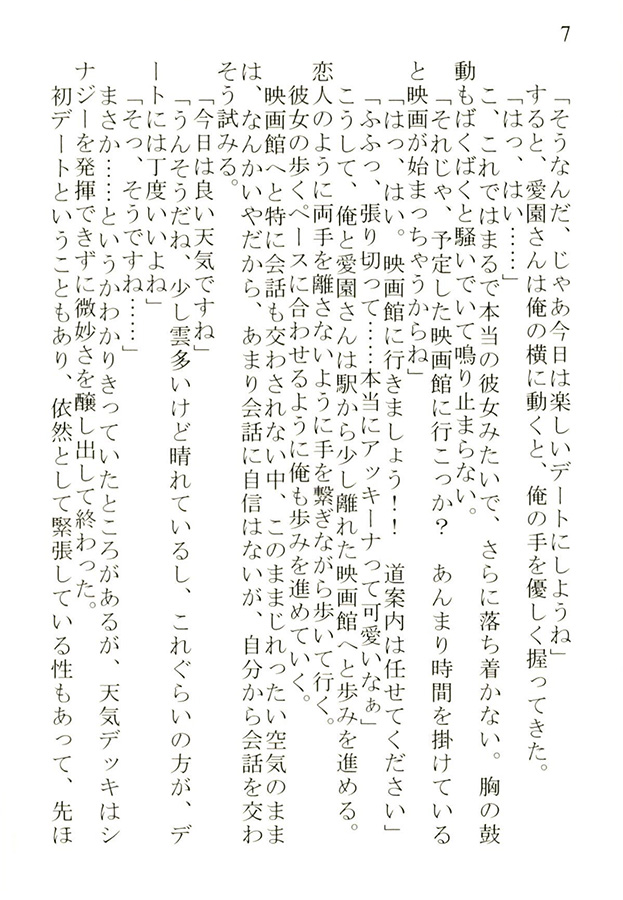 7
「そうなんだ、じゃあ今日は楽しいデートにしようね」
すると、愛園さんは俺の横に動くと、俺の手を優しく握ってきた。
「はっ、はい……」
こ、これではまるで本当の彼女みたいで、さらに落ち着かない。胸の鼓
動もばくばくと騒いでいて鳴り止まらない。
「それじゃ、予定した映画館に行こっか？　あんまり時間を掛けている
と映画が始まっちゃうからね」
「はっ、はい。映画館に行きましょう！！　道案内は任せてください」
「ふふっ、張り切って……本当にアッキーナって可愛いなぁ」
こうして、俺と愛園さんは駅から少し離れた映画館へと歩みを進める。
恋人のように両手を離さないように手を繋ぎながら歩いて行く。
彼女の歩くペースに合わせるように俺も歩みを進めていく。
映画館へと特に会話も交わされない中、このままじれったい空気のまま
は、なんかいやだから、あまり会話に自信はないが、自分から会話を交わ
そう試みる。
「今日は良い天気ですね」
「うんそうだね、少し雲多いけど晴れているし、これぐらいの方が、デ
ートには丁度いいよね」
「そっ、そうですね……」
まさか……というかわかりきっていたところがあるが、天気デッキはシ
ナジーを発揮できずに微妙さを醸し出して終わった。
初デートということもあり、依然として緊張している性もあって、先ほ